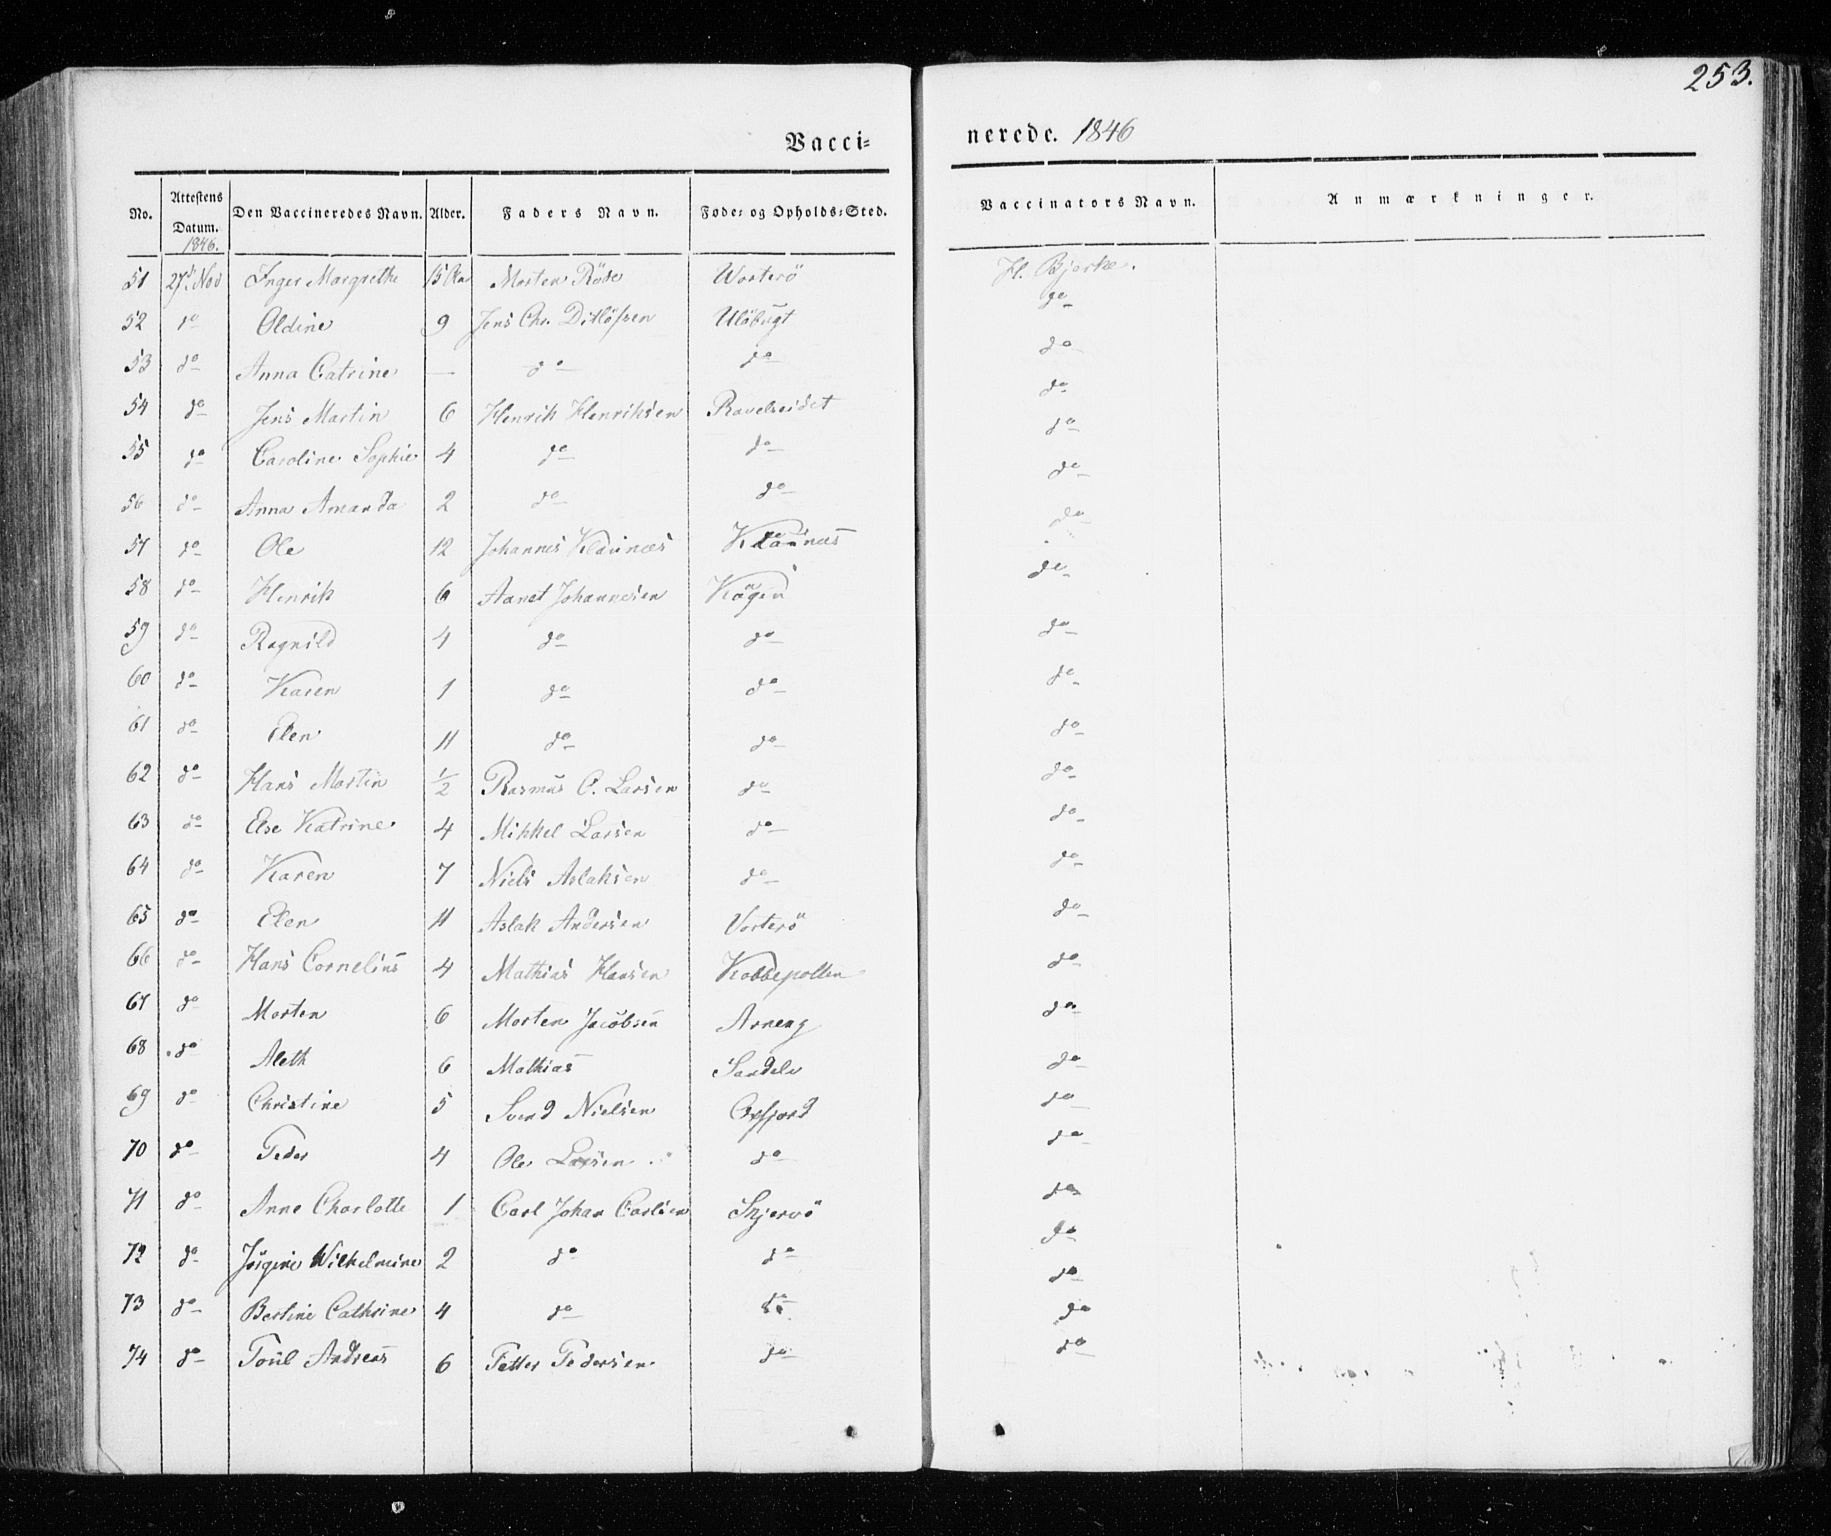 253.
Vacci= nerede. 1846
No. Attestens Datum. Den Vaccineredes Navn. Alder. Faders Navn. Føde= og Opholds=Sted. Vaccinators Navn. Anmærkninger.
1846.
51 27d. Nov Inger Margrethe 15 Morten Röde Worterö H. Bjerke.
52 do Oldine 9 Jens Chr. Ditlöfsen Ulöbugt do
53 do Anna Catrine — do do do
54 do Jens Martin 6 Henrik Henriksen Ravelseidet do
55 do Caroline Sophie 4 do do do
56 do Anna Amanda 2 do do do
57 do Ole 12 Johannes Klaunæs Klaunæs do
58 do Henrik 6 Aanet Johannesen Kågen do
59 do Ragnild 4 do do do
60 do Karen 1 do do do
61 do Elen 11 do do do
62 do Hans Martin 1/2 Rasmus O. Larsen do do
63 do Else Katrine 4 Mikkel Larsen do do
64 do Karen 7 Niels Aslaksen do do
65 do Elen 11 Aslak Andersen Vorterö do
66 do Hans Cornelius 4 Mathias Hansen Kobbepollen do
67 do Morten 6 Morten Jacobsen Arneng do
68 do Aleth 6 Mathias Sandelv do
69 do Christine 5 Svend Nielsen Oxfjord do
70 do Peder 4 Ole Larsen do do
71 do Anne Charlotte 1 Carl Johan Carlsen Skjervö do
72 do Jörgine Wilhelmine 2 do do do
73 do Bertine Cathrine 4 do do do
74 do Poul Andreas 6 Petter Pedersen do do